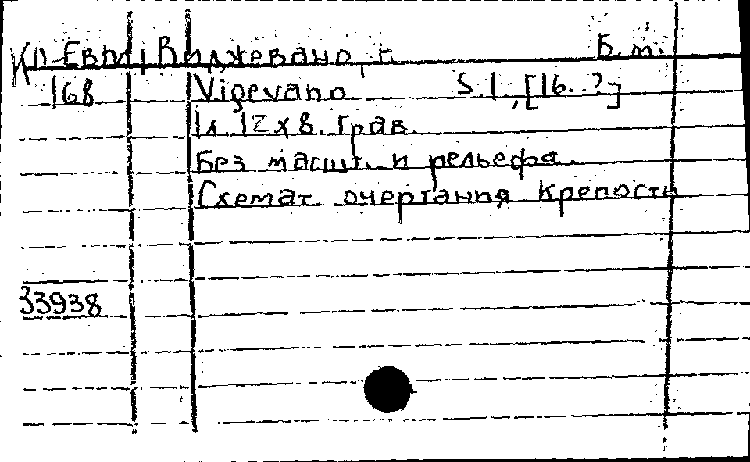 Виджевано, г. Б. м.
168 Vigevano S. l., [16. ?]
1 л. 12 x 8. Грав.
Без масшт. и рельефа.
Схемат. очертания крепости
33938